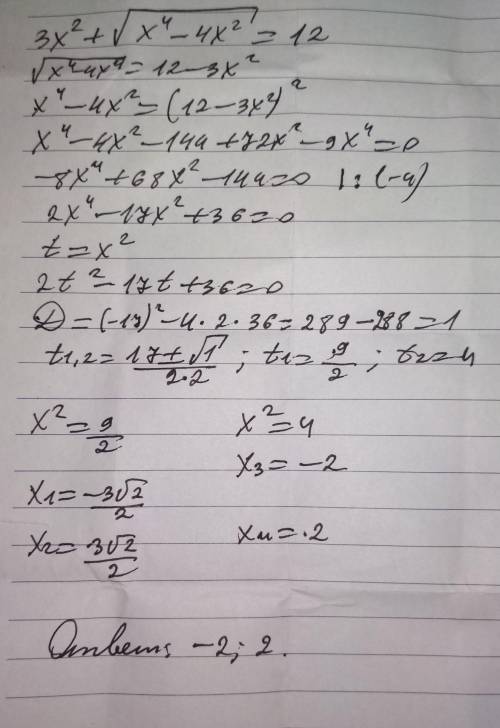 3x² + √(x⁴ − 4x²) = 12
√(x⁴ 4x⁴) = 12 − 3x²
x⁴ − 4x² = (12 − 3x²)²
x⁴ − 4x² − 144 + 72x² − 9x⁴ = 0
−8x⁴ + 68x² − 144 = 0 | : (−4)
2x⁴ − 17x² + 36 = 0
t = x²
2t² − 17t + 36 = 0
D = (−17)² − 4 · 2 · 36 = 289 − 288 = 1
t1,2 = (17 + √1) / (2·2) ; t1 = 9/2 ; t2 = 4
x² = 9/2 x² = 4
x3 = −2
x1 = −3√2/2
x2 = 3√2/2 x4 = 2
Ответ: −2; 2.